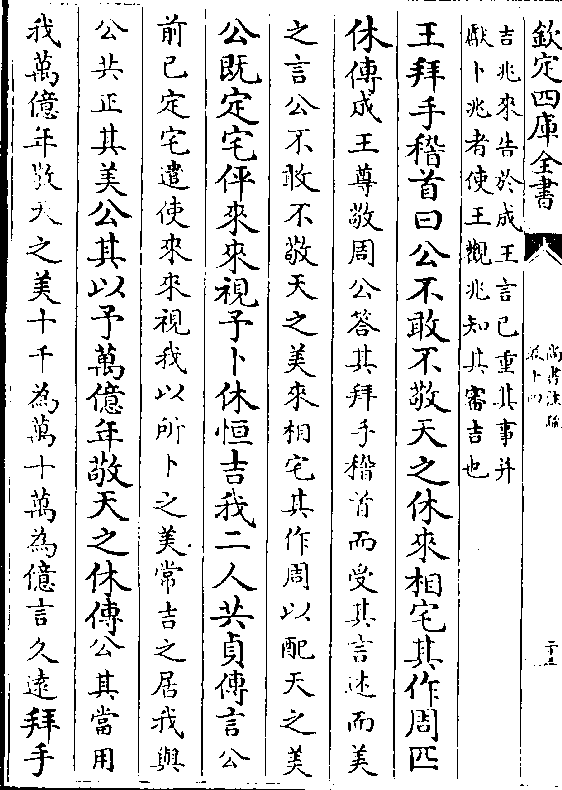 欽定四庫全書
尚書注疏
卷十四
二十五
吉兆來告於成王言已重其事并
獻卜兆者使王觀兆知其審吉也
王拜手稽首曰公不敢不敬天之休來相宅其作周匹
休傳成王尊敬周公答其拜手稽首而受其言述而美
之言公不敢不敬天之美來相宅其作周以配天之美
公既定宅伻來來視予卜休恒吉我二人共貞傳言公
前已定宅遣使來來視我以所卜之美常吉之居我與
公共正其美公其以予萬億年敬天之休傳公其當用
我萬億年敬天之美十千為萬十萬為億言久遠拜手